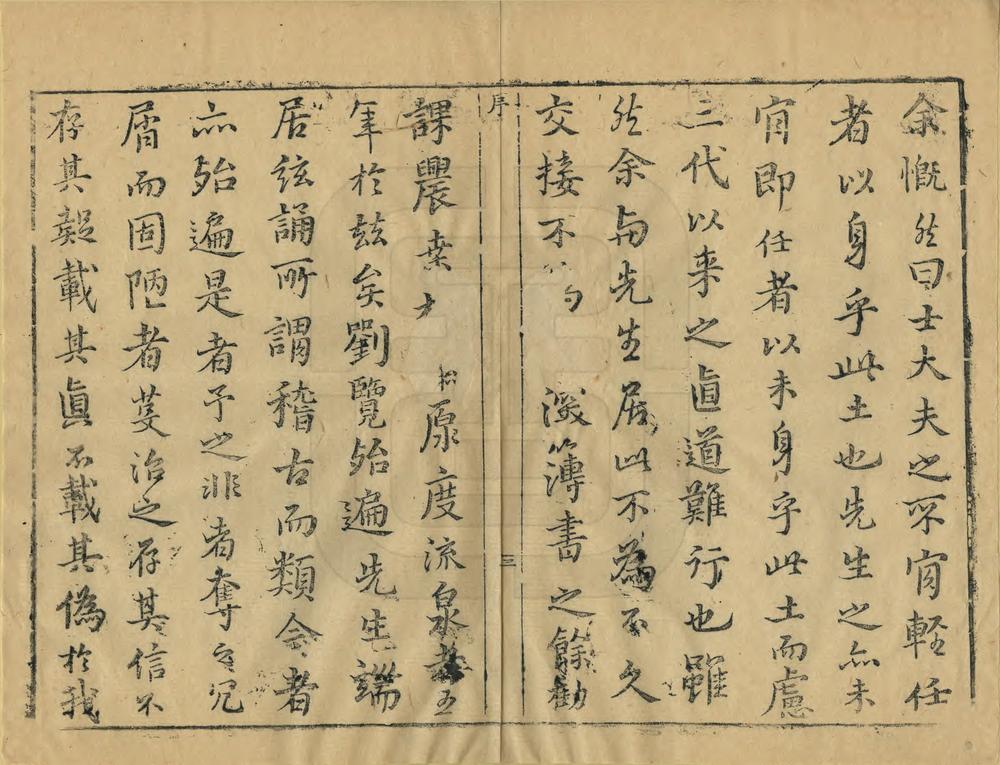 余慨然曰士大夫之不肯輕任
者以身乎此土也先生之亦未
肯即任者以未身乎此土而慮
三代以来之直道難行也雖
然余与先生居此不為不久
交接不
簿書之餘勸
序
三
課農桑
原度流泉
年於茲矣劉覽殆遍先生端
居絃誦所謂稽古而類会者
亦殆遍是者予之非者奪之
屑而固陋者芟治之存其信不
存其疑載其眞不載其偽於我